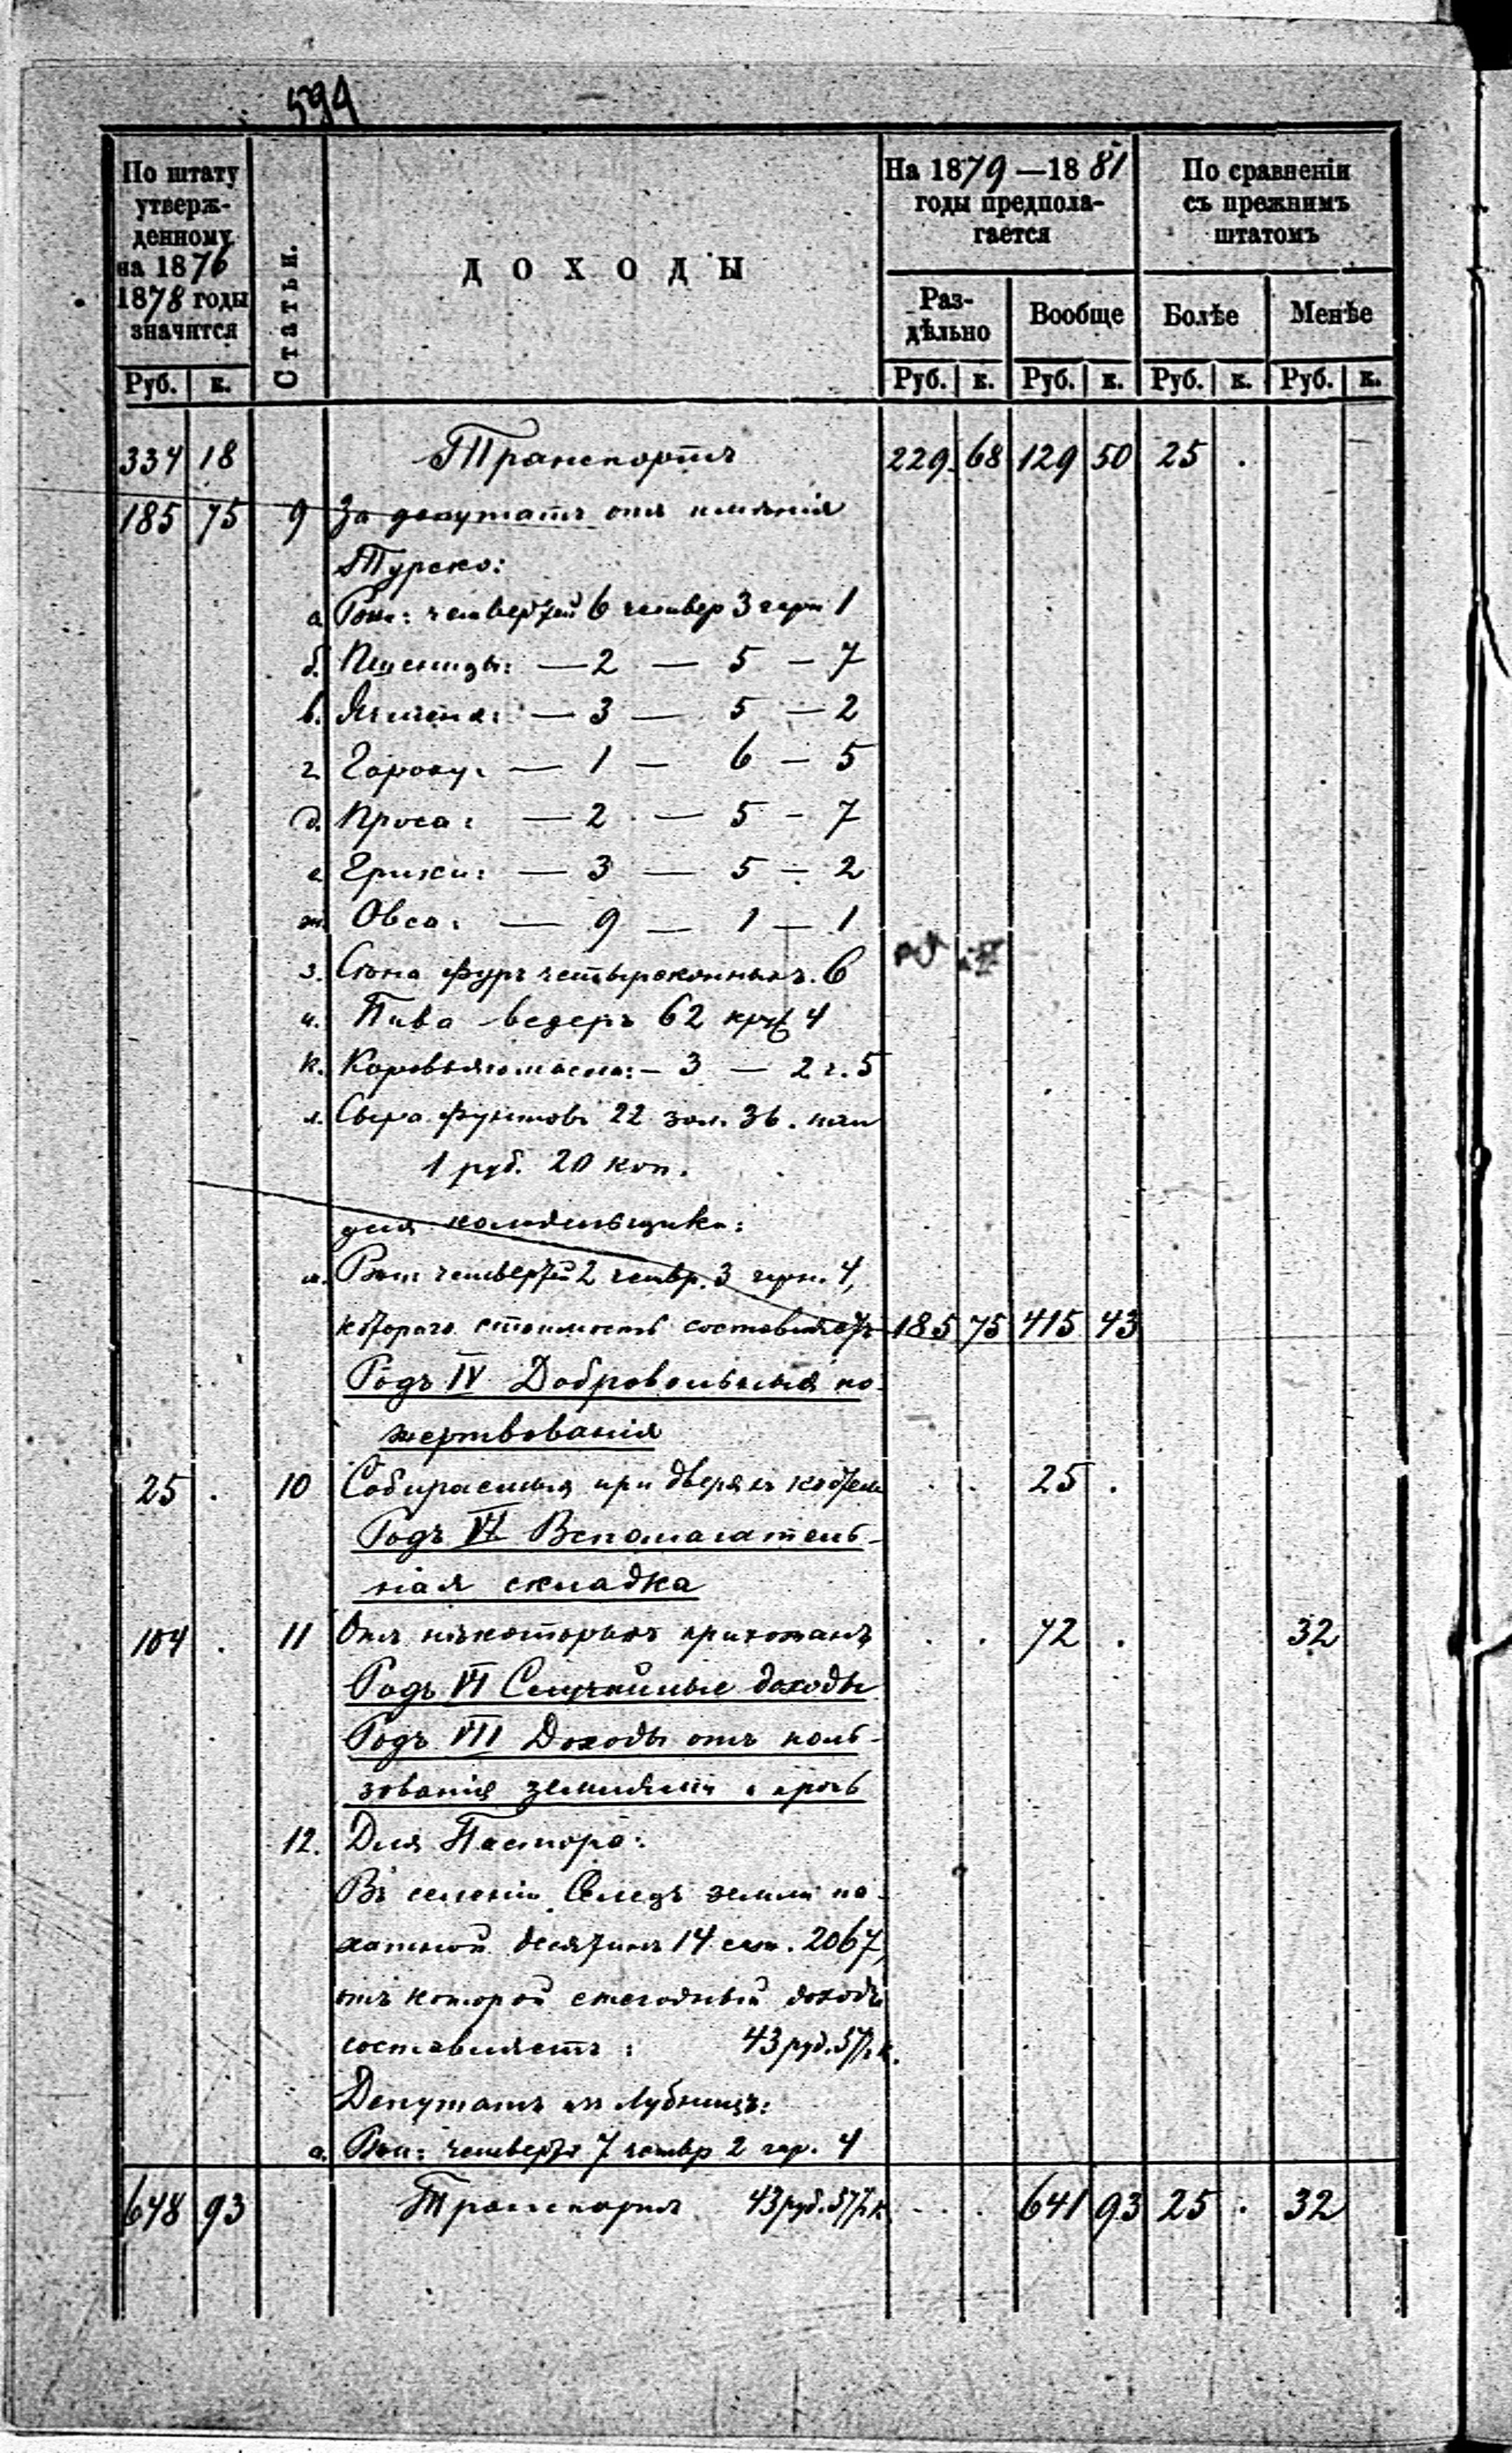 594
По штату утверж- денному на 1876 1878 годы значится
Статьи.
ДОХОДЫ
На 1879 —18 81 годы предпола- гается
По сравненіи съ прежнимъ штатомъ
Раз- дѣльно Вообще Болѣе Менѣе
Руб. к. Руб. к. Руб. к. Руб. к. Руб. к.
334 18 Транспортъ 229 68 129 50 25 .
185 75 9 За депутатъ отъ имѣнія
Турско:
а Ржи: четвертей 6 четвер 3 гарн 1
б. Пшеницы: — 2 — 5 — 7
в. Ячменя: — 3 — 5 — 2
г. Гороху: — 1 — 6 — 5
д. Проса: — 2 — 5 - 7
е Грики: — 3 — 5 - 2
ж Овса: — 9 — 1 — 1
з. Сѣна фуръ четырехконныхъ. 6
и. Пива ведеръ 62 4
к. Коровьяго масла: - 3 — 2 г. 5
л. Сыра фунтовъ 22 зол. 36. или
1 руб. 20 коп.
для
Ржи четвертей 2 четвр. 3 гарн. 4,
котораго стоимость составляетъ 185 75 415 43
Родъ IV Добровольныя по-
жертвованія
25 . 10 Собираемыя при дверяхъ . . 25 .
Родъ Вспомагатель-
ная складка
104 . 11 Отъ нѣкоторыхъ прихожанъ . . 72 . 32
Родъ VI Случайные доходы
Родъ VII Доходы отъ поль-
зованія землями и проч
12. Для Пастора:
Въ селеніи земли па-
хатной десятинъ 14 саж. 2067,
отъ которой ежегодный доходъ
составляетъ : 43 руб. 57½ к.
Депутатъ изъ Лубницъ:
а. Ржи: четвертей 7 четвр 2 гар. 4
648 93 Транспортъ 43 руб. 57½ к . . 641 93 25 . 32